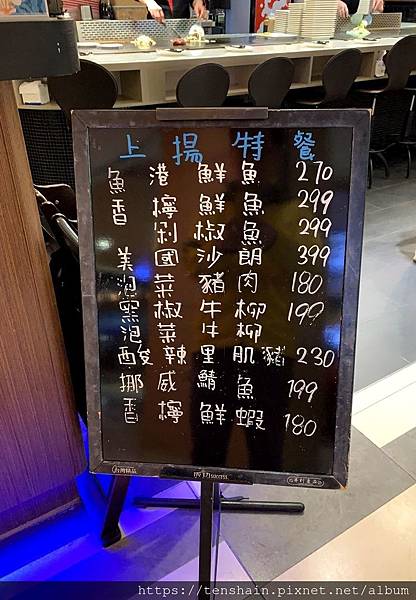 上揚特餐
魚港鮮魚 270
香檸鮮魚 299
剁椒魚 299
美國沙朗 399
泡菜豬肉 180
黑椒牛柳 199
泡菜牛柳
酸辣里肌豬 230
挪威鯖魚 199
香檸鮮蝦 180
台灣精品 成功 success 專利產品
https://tenshain.pixnet.net/album